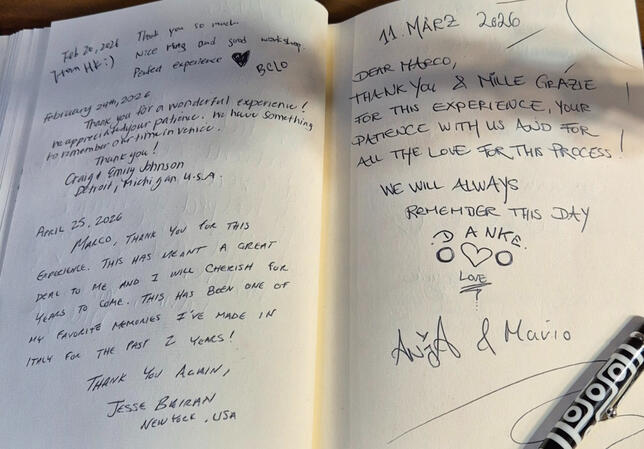 Feb 20, 2026 Thank you so much.
From HK :) Nice ring and good workshop.
Perfect experience ♥ BCLO
February 24th, 2026
Thank you for a wonderful experience!
We appreciated your patience. We have something
to remember our time in Venice.
Thank you!
Craig & Emily Johnson
Detroit, Michigan U.S.A.
April 25, 2026
Marco, Thank you for this
experience. This has meant a great
deal to me and I will cherish for
years to come. This has been one of
my favorite memories I've made in
Italy for the past 2 years!
Thank you again,
Jesse
New York, USA
11. MÄRZ 2026
DEAR MARCO,
THANK YOU & MILLE GRAZIE
FOR THIS EXPERIENCE, YOUR
PATIENCE WITH US AND FOR
ALL THE LOVE FOR THIS PROCESS!
WE WILL ALWAYS
REMEMBER THIS DAY
DANKE
LOVE
Anja & Mario